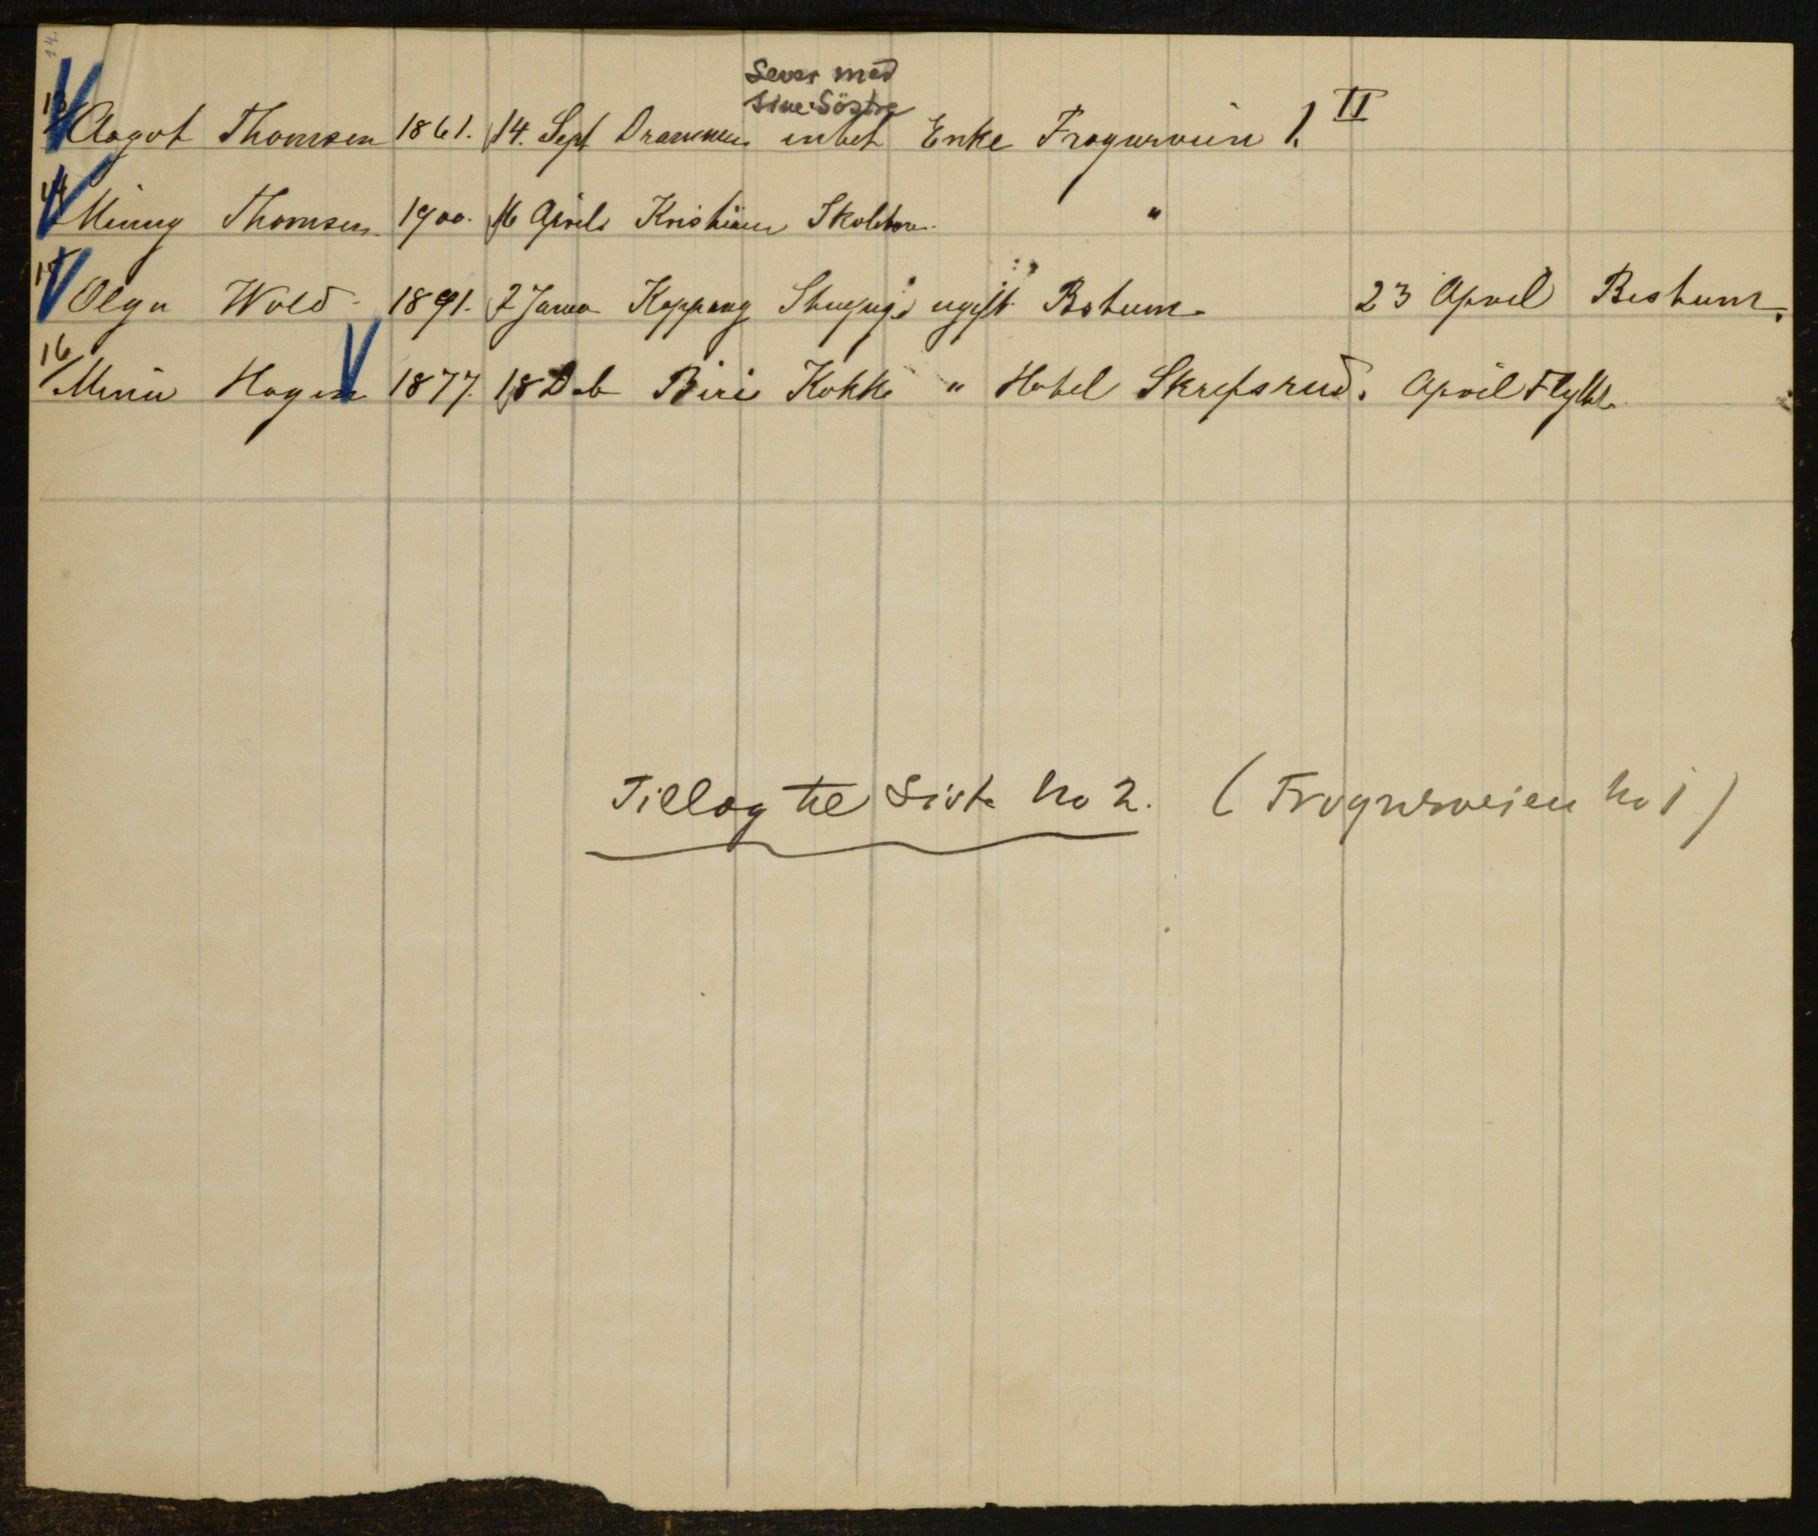 14.
Lever med
sine Söstre
13 Aagot Thomsen 1861. 14. Sept Drammen intet Enke Frognerveien 1. II
14 Minny Thomsen 1900. 16 April Kristiania "
15 Olga Wold 1891. 7 Januar Koppang Stuepige ugift Bestum. 23 April Bestum.
16 Minni Hagen 1877. 18 Deb Biri Kokke " Hotel Skrefsrud. April Flyttet
Tillæg til Liste No 2. (Frognerveien No 1)